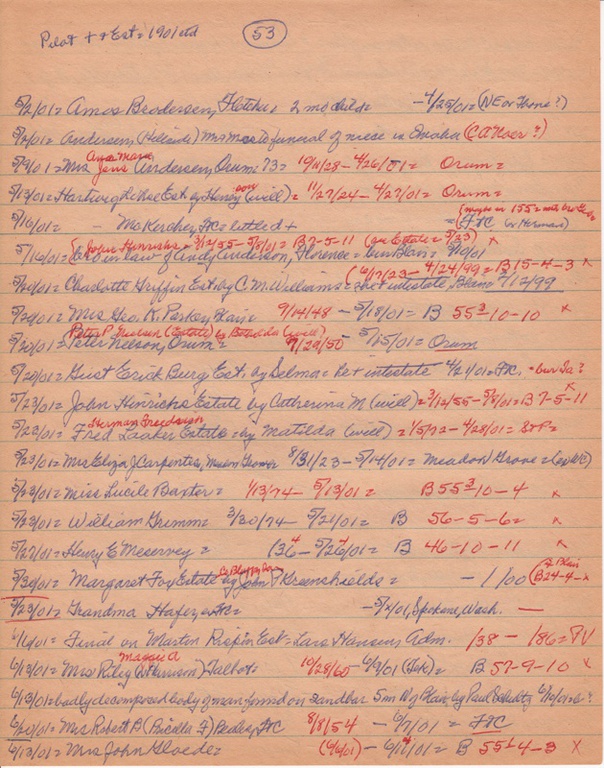 Pilot + + Est = 1901 etd (53)
5/2/01 = Amos Brodersen, Fletcher = 2 mo, child = - 4/25/01 = (NE or Thone?)
5/2/01 = Andersen, (Helsinde) Mrs Mac to funeral of niece in Omaha (CA Noer?)
Anna Marie
5/9/01 = Mrs Jens Andersen, Orum 73 = 10/11/28 - 4/26/01 = Orum =
5/13/01 = Hartwig Est by Henry son (will) = 11/27/24 - 4/27/01 = Orum =
5/16/01 = - McKercher, FtC = settled +
(John Hinrichs = 3/12/55 - 5/8/01 = B 7-5-11 (see Estate = 5/23) x
5/16/01 = Bro in law of Andy Anderson, Florence = bur Blair = 5/10/01
(6/12/23 - 4/24/99 = B 15-4-3 x
5/20/01 = Charlotte Griffin Est by C. M. Williams = intestate, Blair 7/12/99
5/20/01 = Mrs Geo. K. Parker, Blair = 9/14/48 - 5/15/01 = B 55³-10-10 x
Peter P. Nielsen (Estate) by (will)
5/20/01 = Peter Nelson, Orum = 9/29/50 5/15/01 = Orum
5/20/01 = Gust Erick Burg Est. by Selma = intestate 4/21/01 = FtC. = bur Ia?
5/23/01 = John Hinrichs Estate by Catherina M (will) = 3/12/55 - 5/8/01 = B 7-5-11 x
Herman Frederich
5/23/01 = Fred Laaker Estate = by Matilda (will) = 1/5/22 - 4/28/01 = StP =
5/23/01 = Mrs Eliza J Carpenter, Meadow Grove 8/31/23 - 5/14/01 = Meadow Grove =
5/23/01 = Miss Lucile Baxter = 1/13/74 - 5/13/01 = B 55³-10-4 x
5/23/01 = William Gremm = 3/30/74 - 5/21/01 = B 56-5-6 = x
5/27/01 = Henry E Meservey = (36 - 5/26/01 = B 46-10-11 x
5/30/01 = Margaret Foy Estate by John P Greenshields = - 1/00 (B 24-4- x
5/23/01 = Grandma Hafer, FtC = - 5/x/01, Spokane, Wash. —
6/6/01 = Final on Martin Rispin Est = Lars Hansen, Adm. /38 - /86 = PV
Maggie A
6/13/01 = Mrs Riley (W Harrison) Talbot = 10/28/65 - 6/9/01 (Tek) = B 57-9-10 x
6/13/01 = badly decomposed body of man found on sandbar 5 mi N of Blair by Paul Schultz 6/10/01 = B?
6/20/01 = Mrs Robert P (Priscilla F) Pedley, FtC 8/8/54 - 6/7/01 = FtC
6/13/01 = Mrs John Gloede = (6/01) - 6/11/01 = B 55¹-4-3 x